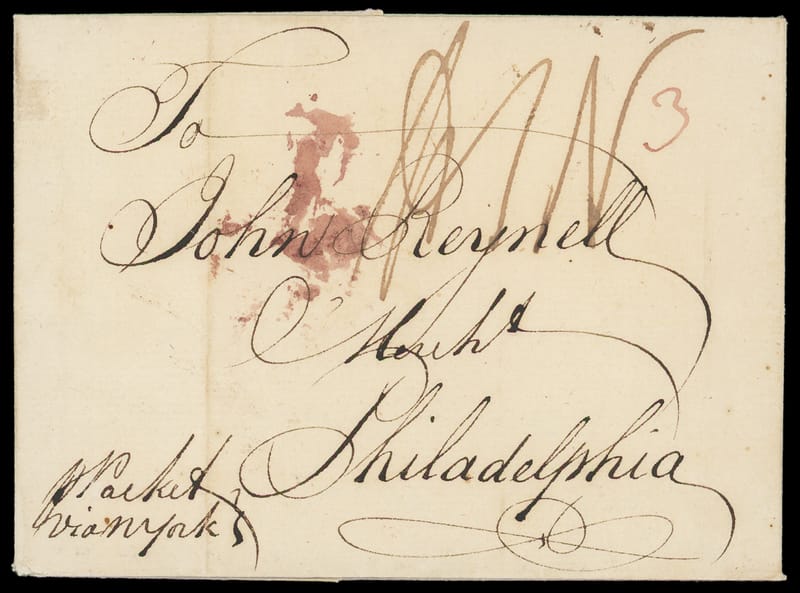 To
3
John Reynell
Merch^t
Philadelphia
⅌ Packet
via N York